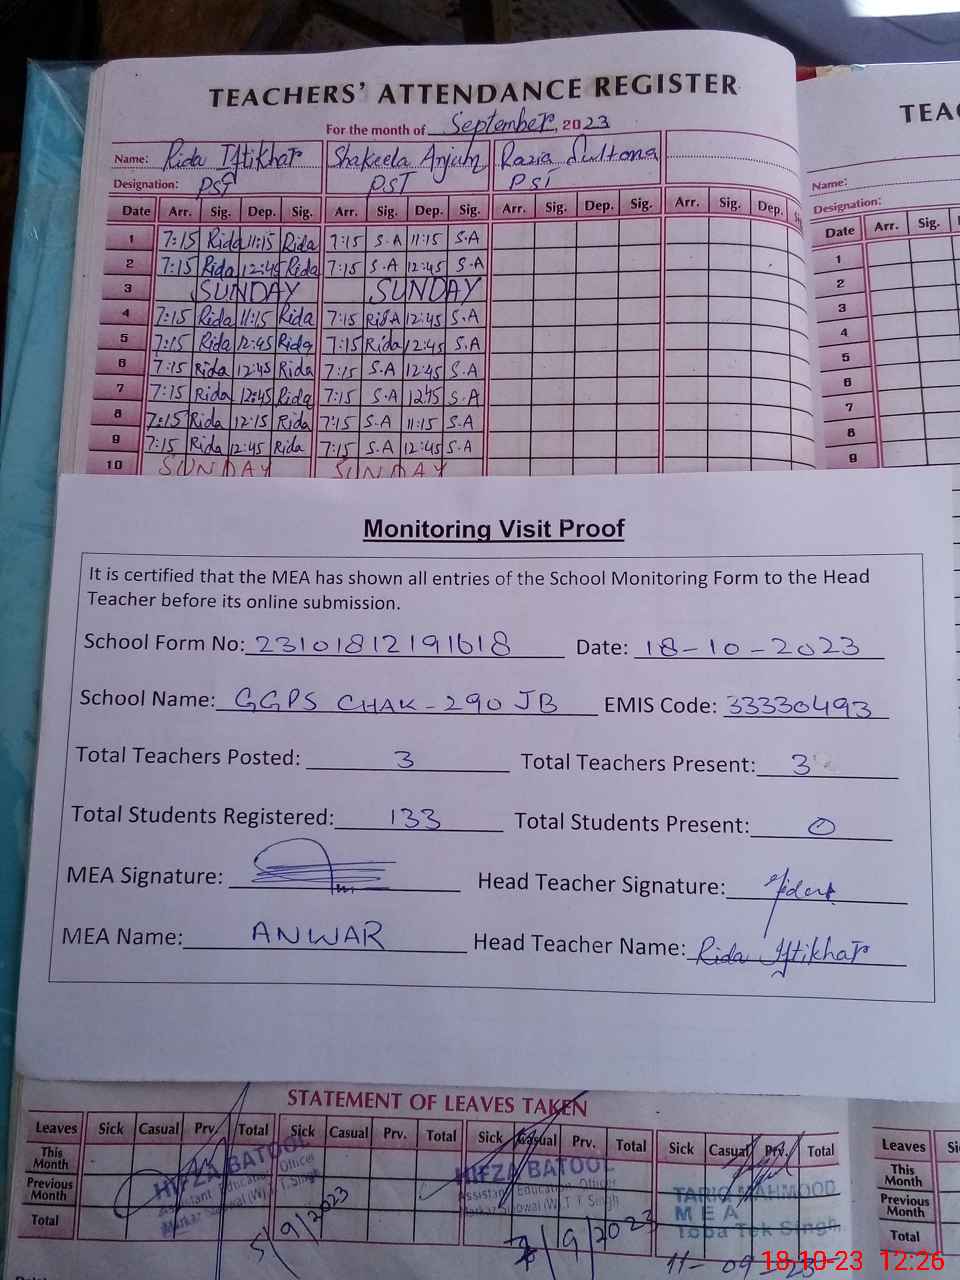 TEACHERS' ATTENDANCE REGISTER
For the month of September, 2023
Name: Rida Iftikhar Shakeela Anjum Razia Sultana
Designation: PST PST PST
Date Arr. Sig. Dep. Sig. Arr. Sig. Dep. Sig. Arr. Sig. Dep. Sig. Arr. Sig. Dep.
1 7:15 Rida 11:15 Rida 7:15 S.A 11:15 S.A
2 7:15 Rida 12:45 Rida 7:15 S.A 12:45 S.A
3 SUNDAY SUNDAY
4 7:15 Rida 11:15 Rida 7:15 Rida 12:45 S.A
5 7:15 Rida 12:45 Rida 7:15 Rida 12:45 S.A
6 7:15 Rida 12:45 Rida 7:15 S.A 12:45 S.A
7 7:15 Rida 12:45 Rida 7:15 S.A 12:45 S.A
8 7:15 Rida 12:15 Rida 7:15 S.A 11:15 S.A
9 7:15 Rida 12:45 Rida 7:15 S.A 12:45 S.A
10 SUNDAY SUNDAY
Name:
Designation:
Date Arr. Sig.
1
2
3
4
5
6
7
8
9
Monitoring Visit Proof
It is certified that the MEA has shown all entries of the School Monitoring Form to the Head
Teacher before its online submission.
School Form No: 23101812191618 Date: 18-10-2023
School Name: GGPS CHAK-290 JB EMIS Code: 33330493
Total Teachers Posted: 3 Total Teachers Present: 3
Total Students Registered: 133 Total Students Present: 0
MEA Signature: Head Teacher Signature:
MEA Name: ANWAR Head Teacher Name: Rida Iftikhar
STATEMENT OF LEAVES TAKEN
Leaves Sick Casual Prv. Total Sick Casual Prv. Total Sick Casual Prv. Total Sick Casual Prv. Total
This Month
Previous Month
Total
HIFZA BATOOL
Assistant Education Officer
Markaz (W) T.T. Singh
5/9/2023
HIFZA BATOOL
Assistant Education Officer
(W) T.T Singh
/9/2023
TARIQ MAHMOOD
MEA
Toba Tek Singh
11-09-23
Leaves
This Month
Previous Month
Total
18-10-23 12:26